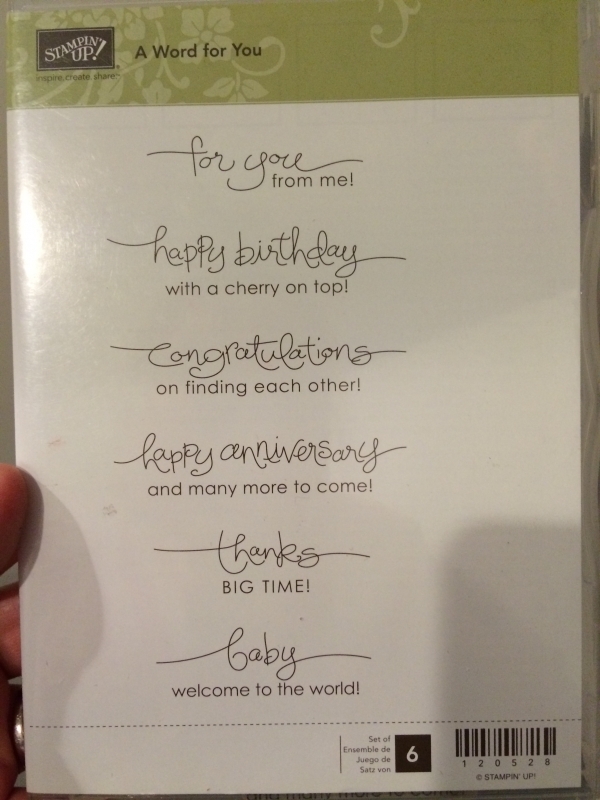 STAMPIN' UP!
inspire.create.share™
A Word for You
for you
from me!
happy birthday
with a cherry on top!
congratulations
on finding each other!
happy anniversary
and many more to come!
thanks
BIG TIME!
baby
welcome to the world!
Set of
Ensemble de
Juego de
Satz von
6
1 2 0 5 2 8
© STAMPIN' UP!
and many more to come!